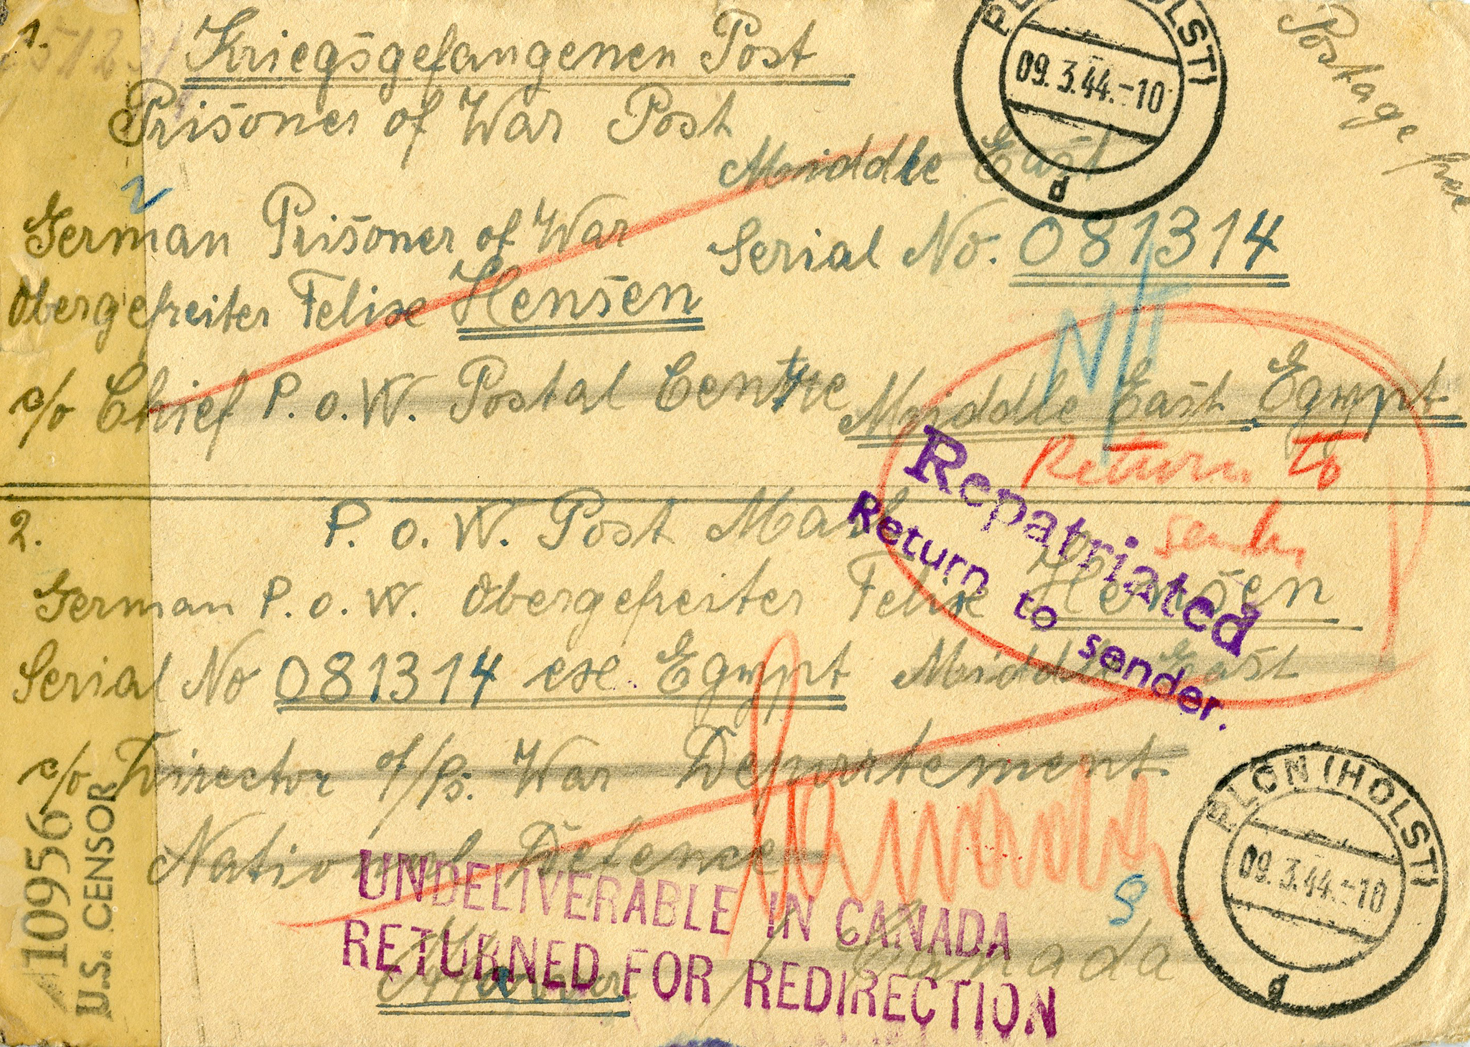 1. Kriegsgefangenen Post
Prisoner of War Post
Postage free
PLÖN (HOLST)
09.3.44.-10
d
Middle East
German Prisoner of War Serial No. 081314
Obergefreiter Felix Hensen
NTT
c/o Chief P.o.W. Postal Centre Middle East Egypt
Return to
sender
Repatriated
Return to sender.
2. P.o.W. Post Mail
German P.o.W. Obergefreiter Felix Hensen
Serial No 081314 ex. Egypt Middle East
c/o Director of/Ps. War Departement
National Defence
Canada
UNDELIVERABLE IN CANADA
RETURNED FOR REDIRECTION
Ottawa / Canada
S
PLÖN (HOLST)
09.3.44.-10
d
10956
U.S. CENSOR